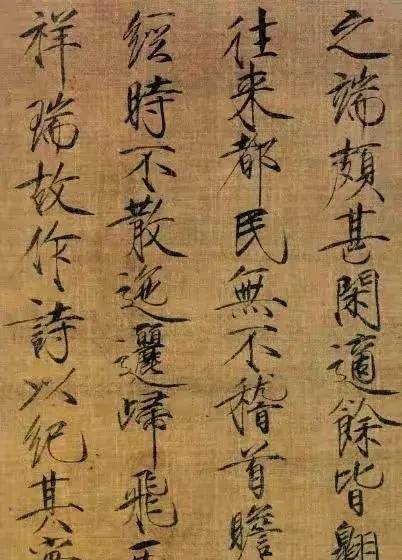 之端頗甚閑適餘皆
往來都民無不稽首瞻
經時不散迤邐歸飛
祥瑞故作詩以紀其